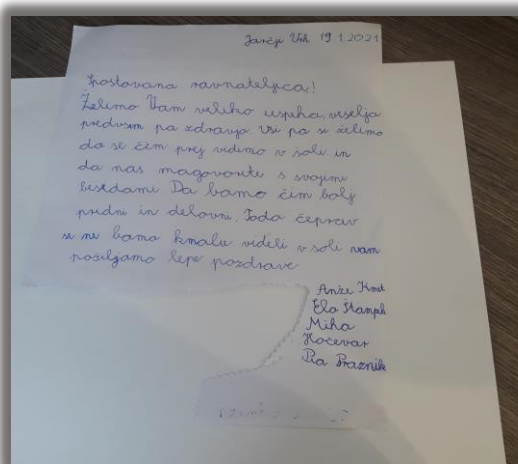 Jarčji Vrh, 19.1.2021
Spoštovana ravnateljica!
Želimo Vam veliko uspeha, veselja
predvsem pa zdravja. Vsi pa si želimo
da se čim prej vidimo v šole in
da nas nagovorite s svojimi
besedami. Da bomo čim bolj
pridni in delovni. Toda čeprav
se ne bomo kmalu videli v šoli vam
pošiljamo lepe pozdrave
Anže Kmet
Ela Štampek
Miha
Kočevar
Pia Praznik